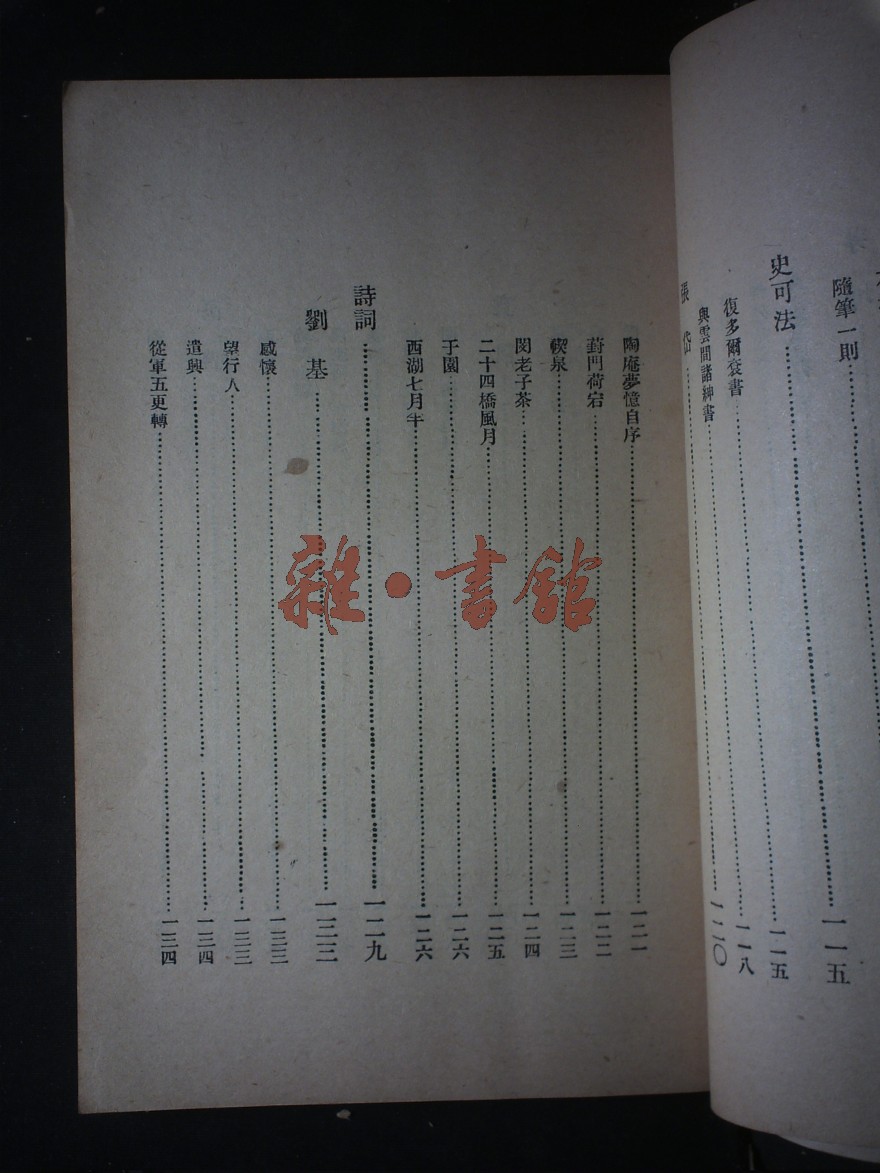 隨筆一則……一一五
史可法……一一五
復多爾袞書……一一八
與雲間諸紳書……
張岱……一二〇
陶庵夢憶自序……一二一
葑門荷宕……一二二
禊泉……一二三
閔老子茶……一二四
二十四橋風月……一二五
于園……一二六
西湖七月半……一二六
詩詞……一二九
劉基……一三三
感懷……一三三
望行人……一三三
遣興……一三四
從軍五更轉……一三四
雜·書館